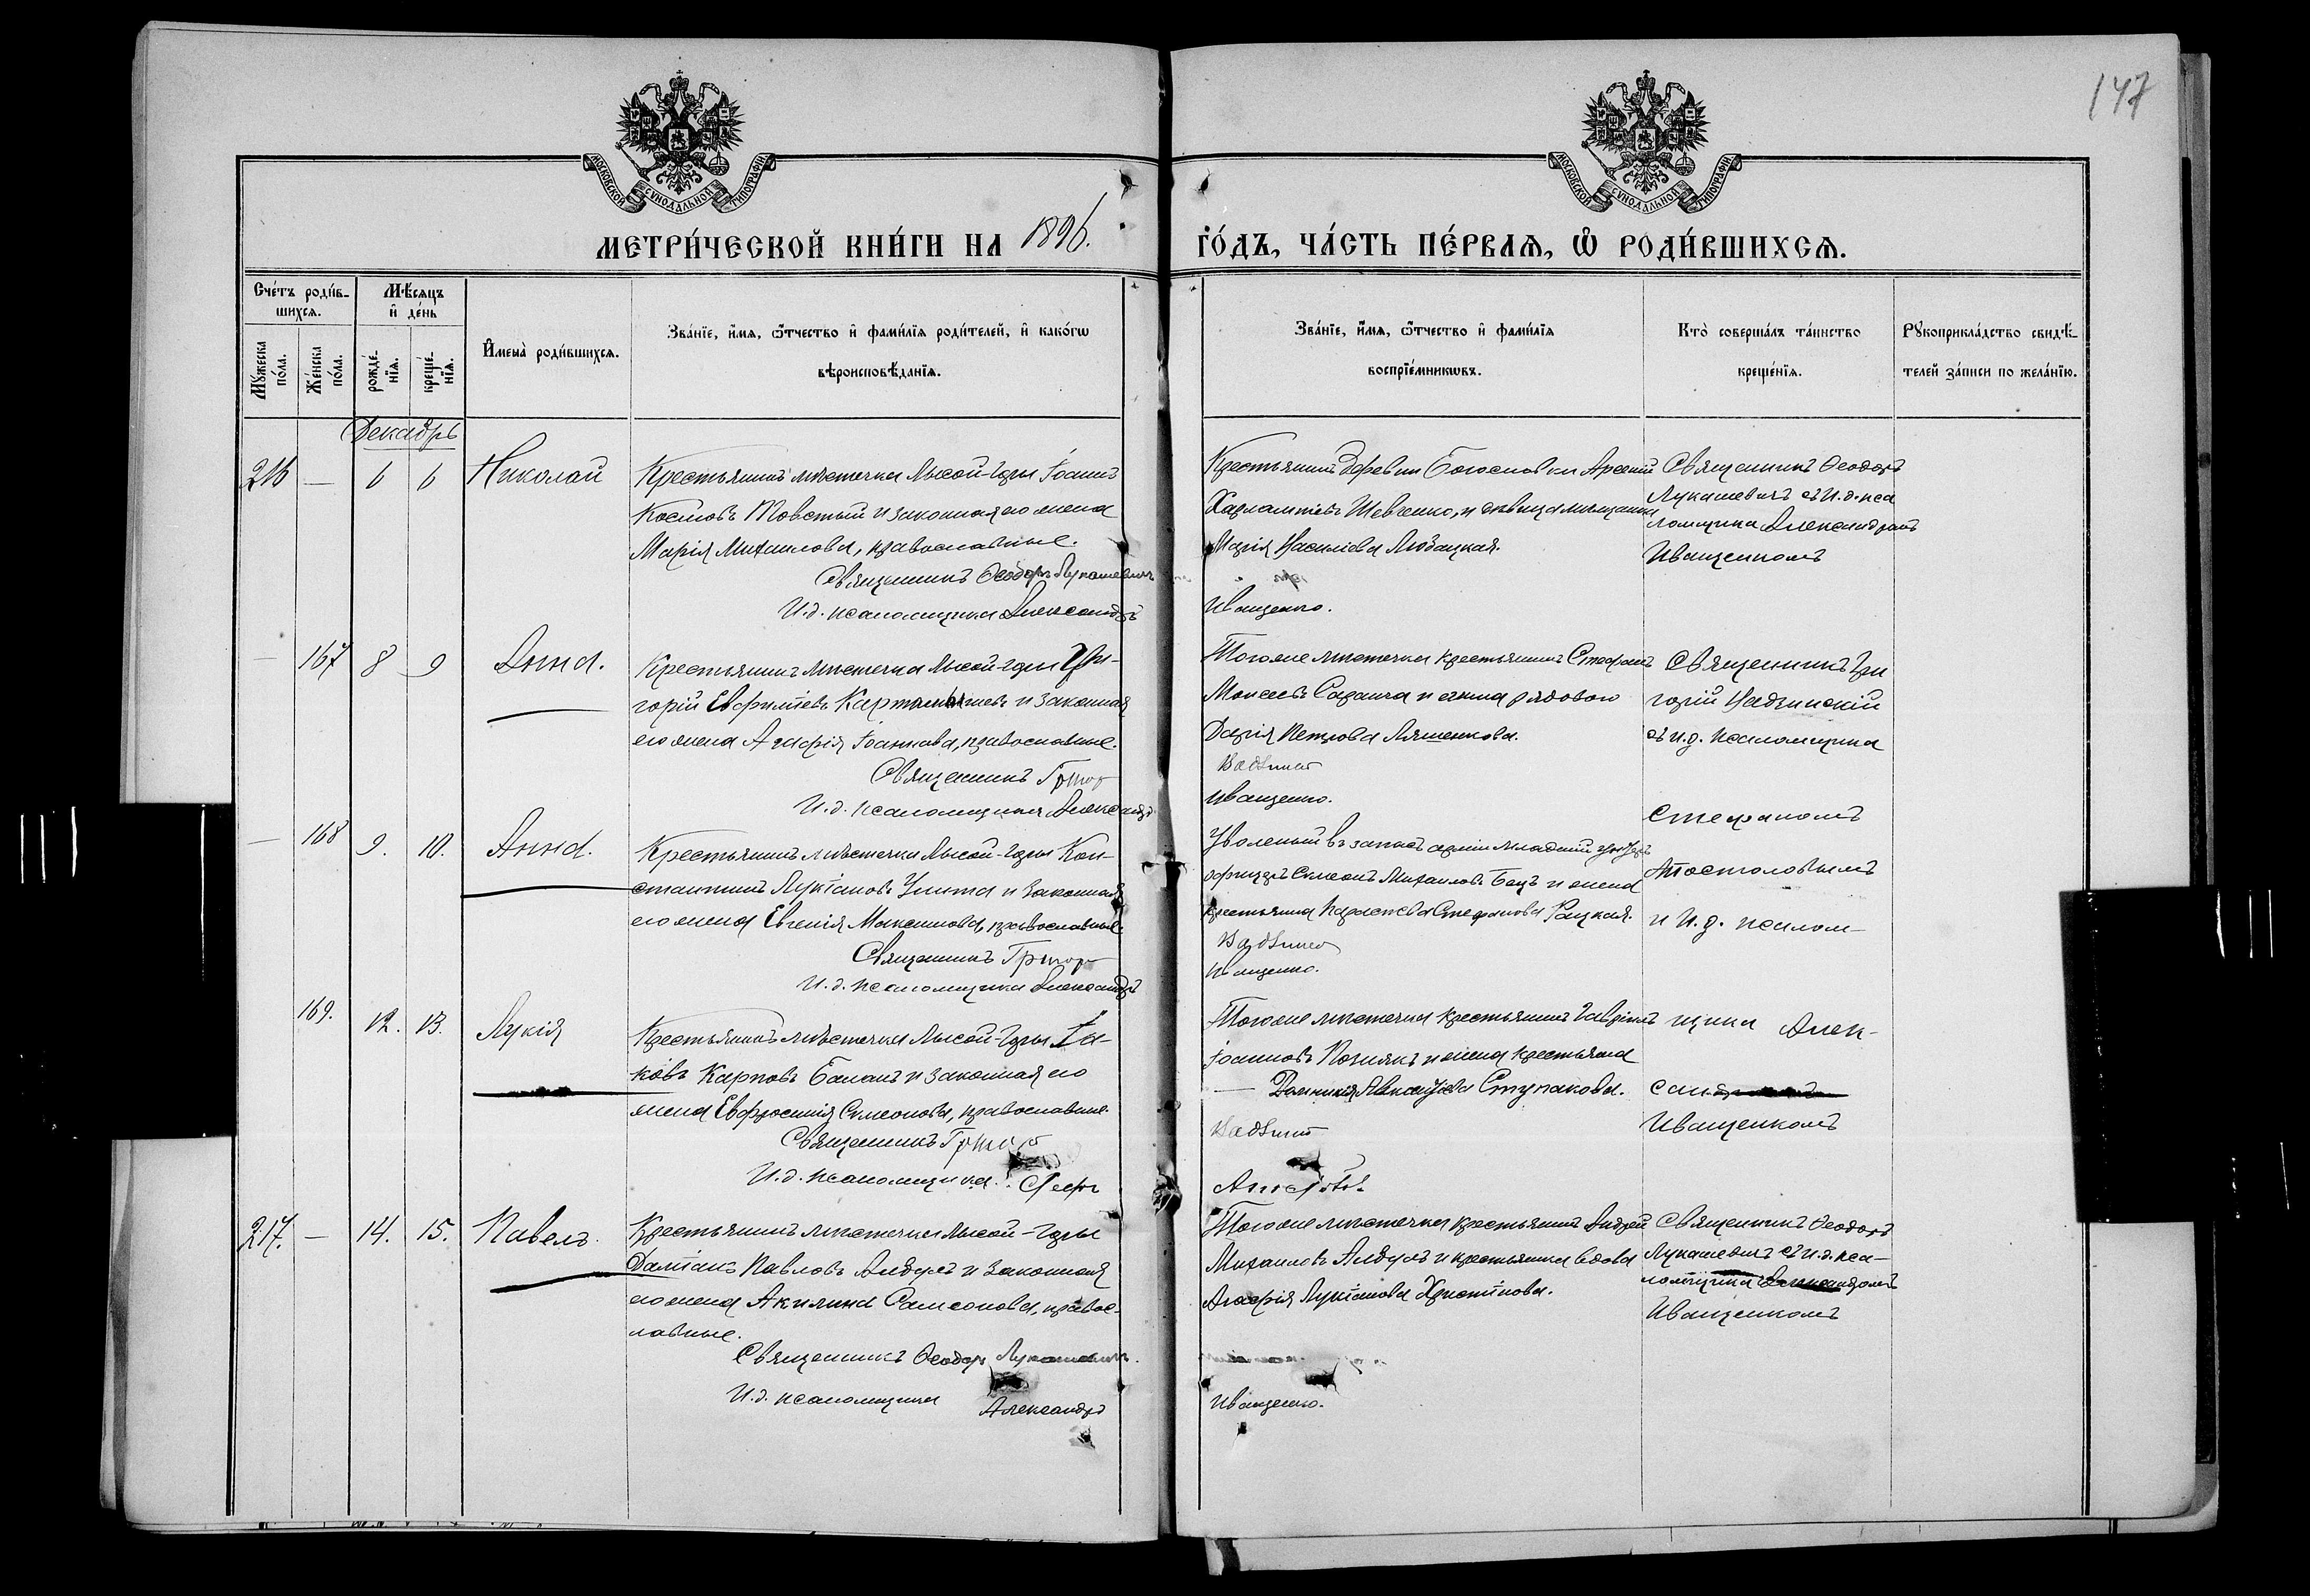 147
МОСКОВСКОЙ СѴНОДАЛЬНОЙ ТИПОГРАФІИ
МОСКОВСКОЙ СѴНОДАЛЬНОЙ ТИПОГРАФІИ
МЕТРИ́ЧЕСКОЙ КНИ́ГИ НА 1896.
ГО́ДЪ, ЧА́СТЬ ПЕ́РВАЯ, Ѿ РОДИ́ВШИХСЯ.
Сче́тъ роди́в-
шихся.
Мꙋ́жеска по́ла.
Же́нска по́ла.
Мѣ́сяцъ и҆ де́нь
рожде́-нїя.
креще́-нїя.
И҆мена̀ роди́вшихся.
Зва́нїе, и҆́мя, ѻ҆́тчество и҆ фами́лїя роди́телей, и҆ како́гѡ
вѣроисповѣ́данїя.
Зва́нїе, и҆́мя, ѻ҆́тчество и҆ фами́лїя
воспрїе́мникѡвъ.
Кто̀ соверша́лъ та́инство
креще́нїя.
Рꙋкоприкла́дство свидѣ́-
телей за́писи по жела́нїю.
Декабрь
216 — 6 6 Николай
Крестьянинъ мѣстечка Лысой-Горы Іоаннъ
Товстый и законная его жена
Марія Михаилова, православные.
Священникъ Ѳеодоръ Лукашевичъ
И.д. псаломщика Александръ
Крестьянинъ деревни Богословки Арсеній
Харлампіевъ Шевченко, и девица мѣщанка
Марія Василіева
Иващенко.
Священникъ Ѳеодоръ
Лукашевичъ съ И.д. пса
ломщика Александромъ
Иващенкомъ
— 167 8 9 Анна.
Крестьянинъ мѣстечка Лысой-Горы Гри-
горій и законная
его жена Агафія Іоаннова, православные.
Священникъ Григор
И.д. псаломщика Александр
Тогоже мѣстечка крестьянинъ Стефанъ
Моисеевъ и жена рядового
Дарія Петрова Ляшенкова.
Иващенко.
Священникъ Гри
горій
съ и.д. псаломщика
Стефаномъ
— 168 9. 10. Анна.
Крестьянинъ мѣстечка Лысой-Горы Кон-
стантинъ Лукіановъ и законная
его жена Евгенія Максимова, православные.
Священникъ Григор
И.д. псаломщика Александръ
Уволеный въ запасъ арміи младшій унтеръ
офицеръ Симеонъ Михаиловъ и жена
крестьянина Параскева Стефанова
Иващенко.
Апостоловымъ
и И.д. псалом-
169. 12. 13. Лукія
Крестьянинъ мѣстечка Лысой-Горы Іа-
ковъ Карповъ Баланъ и законная его
жена Евфросинія Симеонова, православные.
Священникъ Григор
И.д. псаломщика
Тогоже мѣстечка крестьянинъ Гавріилъ
Іоанновъ Познякъ и жена крестьянина
Ступакова.
щика Алек-
Иващенкомъ
217. — 14. 15. Павелъ.
Крестьянинъ мѣстечка Лысой-Горы
Даміанъ Павловъ и законная
его жена Акилина Самсонова, правос-
лавные.
Священникъ Ѳеодоръ Лукашевичъ.
И.д. псаломщика Александръ
Тогоже мѣстечка крестьянинъ Андрей
Михаиловъ и крестьянка вдова
Агафія Лукіанова
Иващенко.
Священникъ Ѳеодоръ
Лукашевичъ съ и.д. пса-
ломщика Александромъ
Иващенкомъ